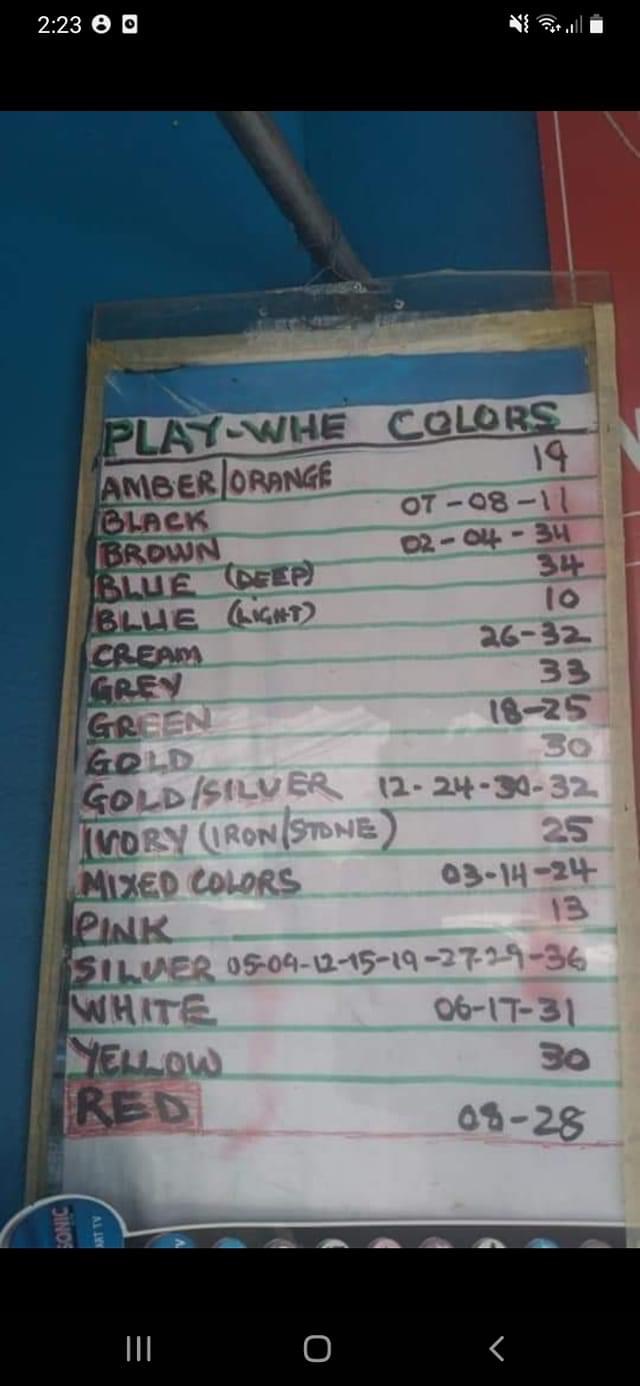 2:23
PLAY-WHE COLORS
AMBER/ORANGE 19
BLACK 07-08-11
BROWN 02-04-34
BLUE (DEEP) 34
BLUE (LIGHT) 10
CREAM 26-32
GREY 33
GREEN 18-25
GOLD 30
GOLD/SILVER 12-24-30-32
IVORY (IRON/STONE) 25
MIXED COLORS 03-14-24
PINK 13
SILVER 05-09-12-15-19-27-29-36
WHITE 06-17-31
YELLOW 30
RED 08-28
SONIC
ART TV